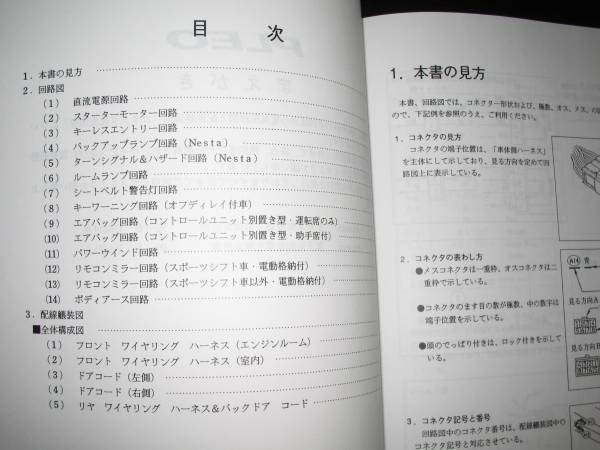 目 次
1. 本書の見方
2. 回路図
(1) 直流電源回路
(2) スターターモーター回路
(3) キーレスエントリー回路
(4) バックアップランプ回路(Nesta)
(5) ターンシグナル&ハザード回路(Nesta)
(6) ルームランプ回路
(7) シートベルト警告灯回路
(8) キーワーニング回路(オフディレイ付車)
(9) エアバッグ回路(コントロールユニット別置き型・運転席のみ)
(10) エアバッグ回路(コントロールユニット別置き型・助手席付)
(11) パワーウインド回路
(12) リモコンミラー回路(スポーツシフト車・電動格納付)
(13) リモコンミラー回路(スポーツシフト車以外・電動格納付)
(14) ボディアース回路
3. 配線艤装図
■全体構成図
(1) フロント ワイヤリング ハーネス(エンジンルーム)
(2) フロント ワイヤリング ハーネス(室内)
(3) ドアコード(左側)
(4) ドアコード(右側)
(5) リヤ ワイヤリング ハーネス&バックドア コード
1. 本書の見方
本書、回路図では、コネクター形状および、極数、オス、メス、の
ので、下記例を参照のうえ、ご利用ください。
1. コネクタの見方
コネクタの端子位置は、「車体側ハーネス」
を主体にして示しており、見る方向を定めて回
路図上に表示している。
2. コネクタの表わし方
●メスコネクタは一重枠、オスコネクタは二
重枠で示している。
●コネクタのます目の数が極数、中の数字は
端子位置を示している。
●頭のでっぱり付きは、ロック付きを示して
いる。
A14 青
見る方向A
見る方向B
3. コネクタ記号と番号
回路図中のコネクタ番号は、配線艤装図中の
コネクタ記号と対応させている。